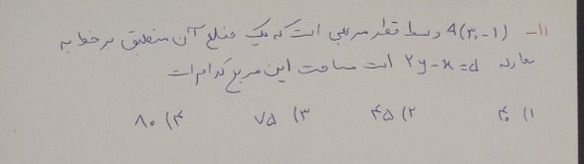 ۱۱- A(۳,-۱) وسط قطر مربعی است که یک ضلع آن منطبق بر خط به
معادله ۲y-x=d است مساحت این مربع کدام است
۱) ۴۰ ۲) ۴۵ ۳) ۷۵ ۴) ۸۰